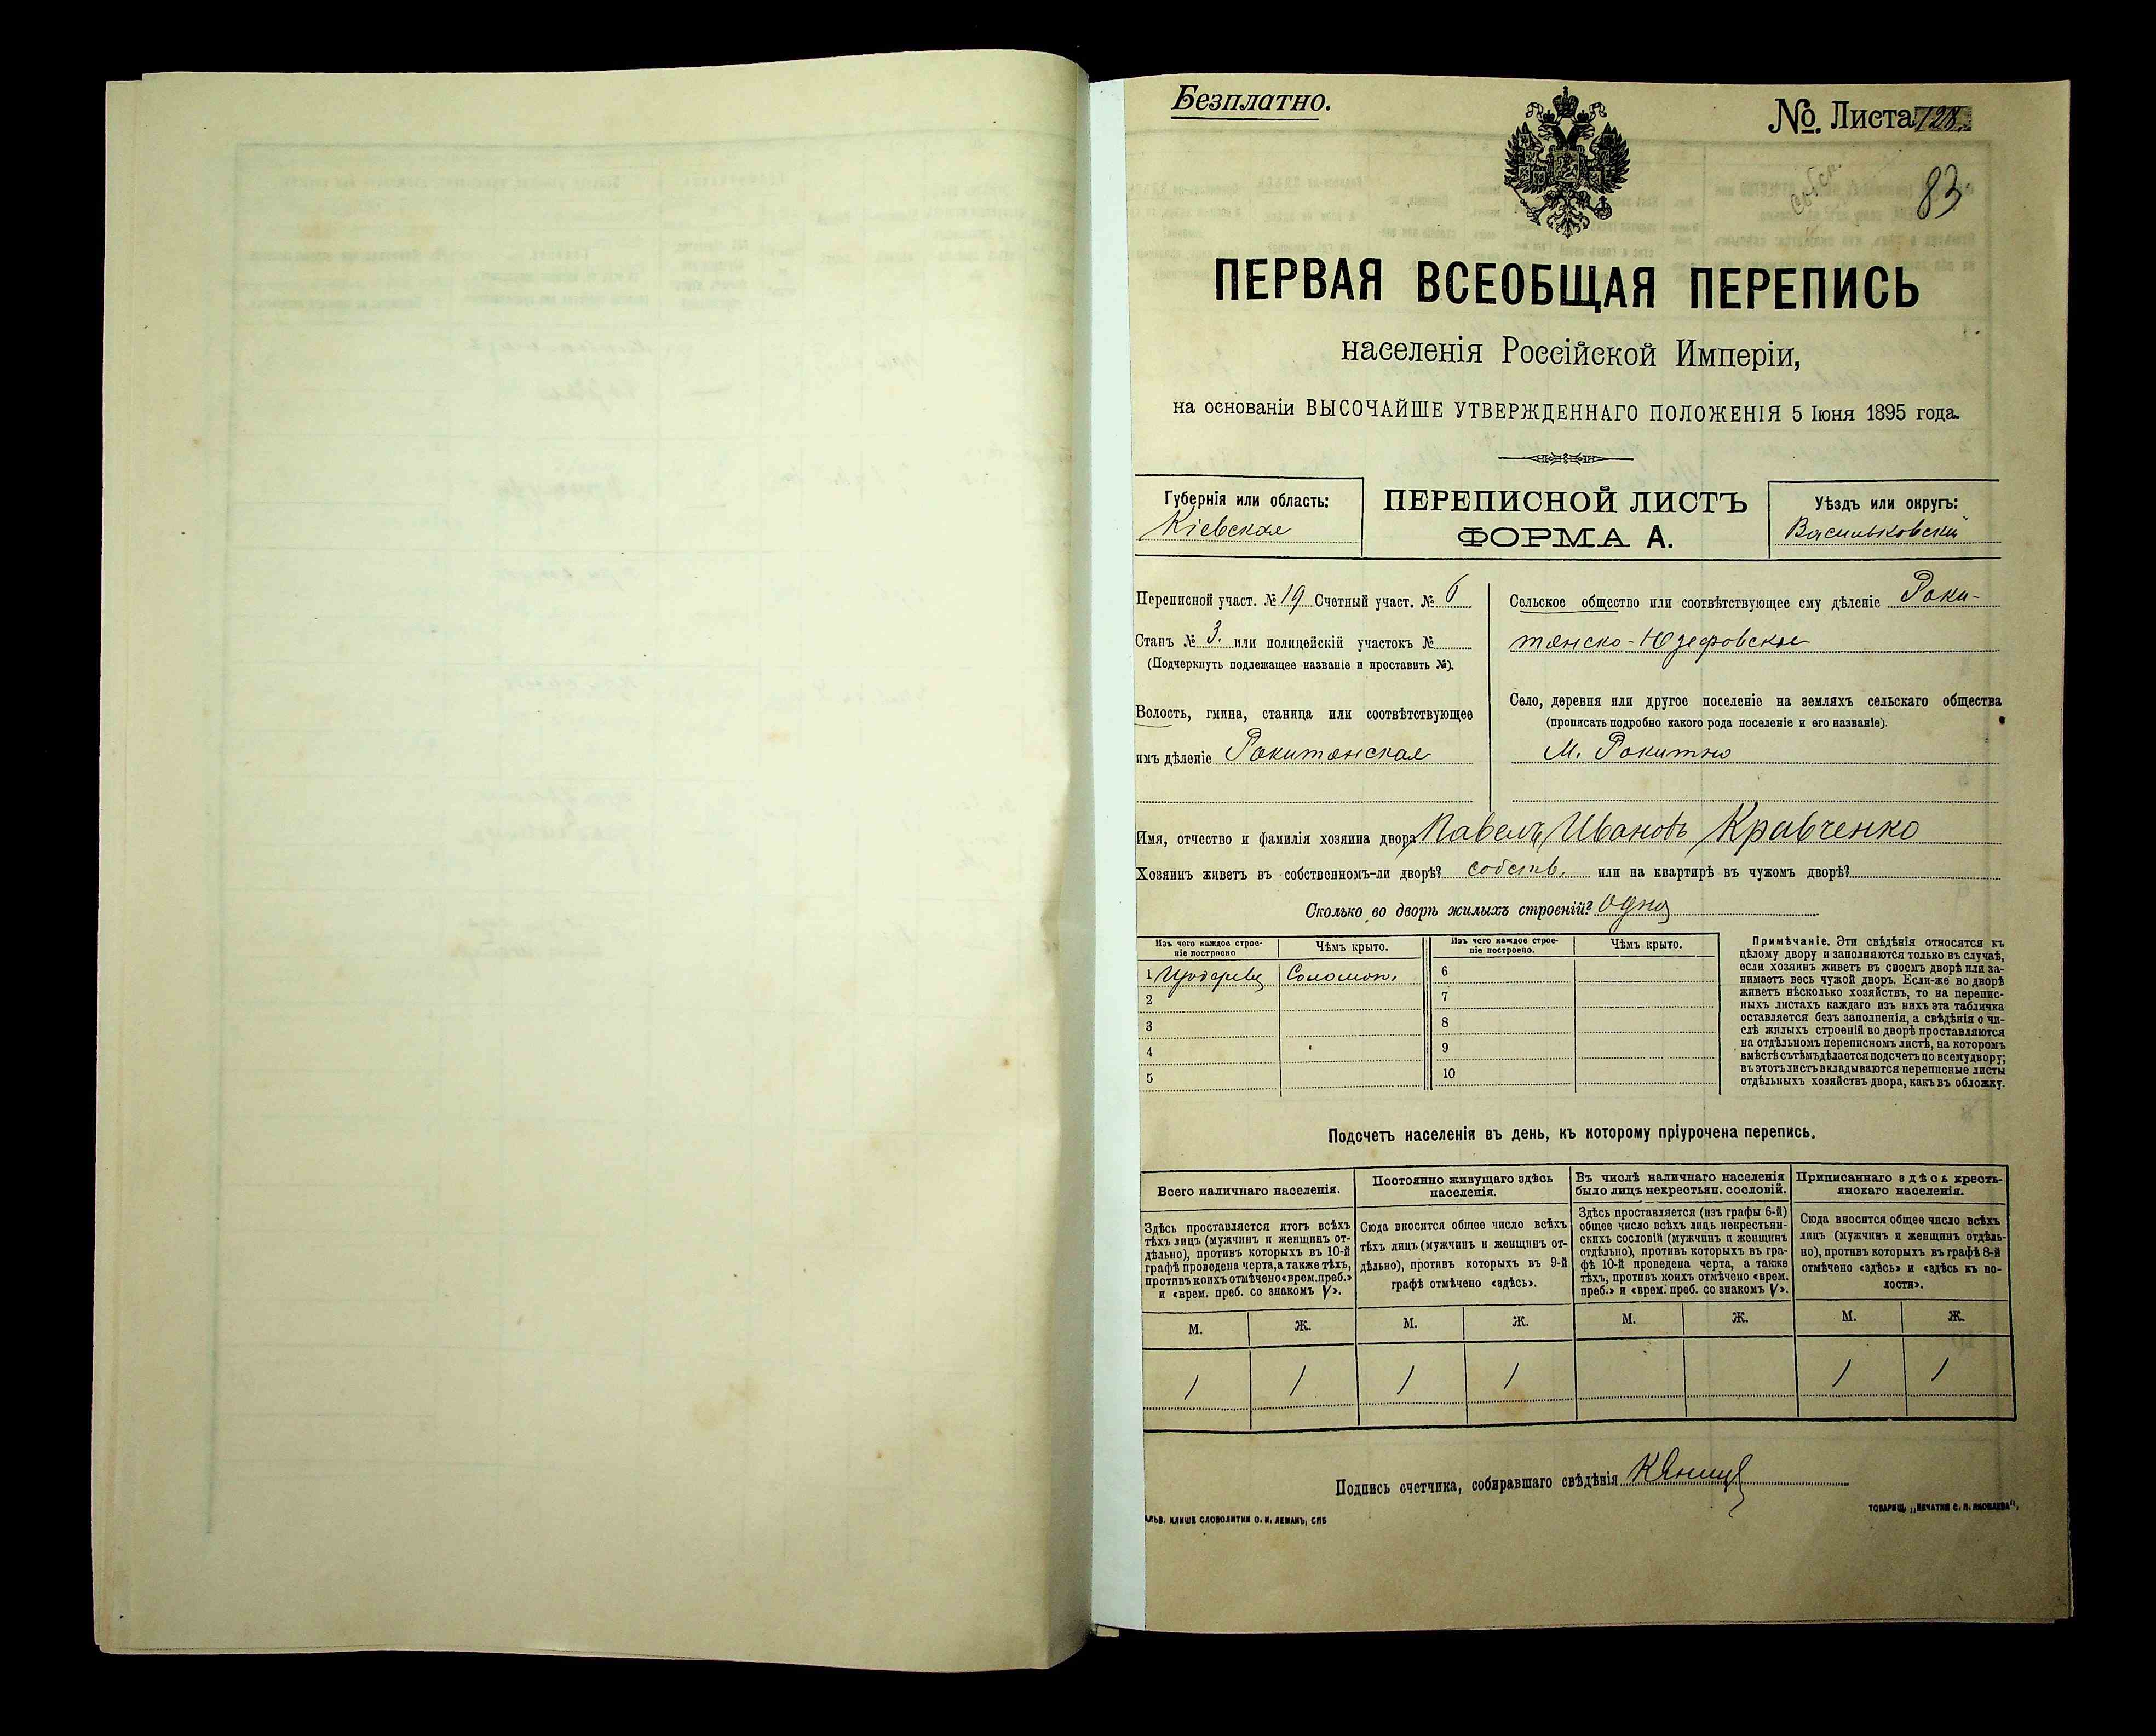 Безплатно.
№. Листа 128.
собств.
83
ПЕРВАЯ ВСЕОБЩАЯ ПЕРЕПИСЬ
населенія Россійской Имперіи,
на основаніи ВЫСОЧАЙШЕ УТВЕРЖДЕННАГО ПОЛОЖЕНІЯ 5 Іюня 1895 года.
Губернія или область:
Кіевская
ПЕРЕПИСНОЙ ЛИСТЪ
ФОРМА А.
Уѣздъ или округъ:
Васильковскій
Переписной участ. № 19 Счетный участ. № 6
Станъ № 3. или полицейскій участокъ №
(Подчеркнуть подлежащее названіе и проставить №).
Волость, гмина, станица или соотвѣтствующее
имъ дѣленіе Рокитянская
Сельское общество или соотвѣтствующее ему дѣленіе Роки-
тянско-Юзефовское
Село, деревня или другое поселеніе на земляхъ сельскаго общества
(прописать подробно какого рода поселеніе и его названіе).
М. Рокитно
Имя, отчество и фамилія хозяина двора Павелъ Ивановъ Кравченко
Хозяинъ живетъ въ собственномъ-ли дворѣ? собств. или на квартирѣ въ чужомъ дворѣ?
Сколько во дворѣ жилыхъ строеній? одно
Изъ чего каждое строе-
ніе построено
Чѣмъ крыто.
Изъ чего каждое строе-
ніе построено.
Чѣмъ крыто.
1 Изъ дерева Соломою.
2
3
4
5
6
7
8
9
10
Примѣчаніе. Эти свѣдѣнія относятся къ
цѣлому двору и заполняются только въ случаѣ,
если хозяинъ живетъ въ своемъ дворѣ или за-
нимаетъ весь чужой дворъ. Если-же во дворѣ
живетъ нѣсколько хозяйствъ, то на перепис-
ныхъ листахъ каждаго изъ нихъ эта табличка
оставляется безъ заполненія, а свѣдѣнія о чи-
слѣ жилыхъ строеній во дворѣ проставляются
на отдѣльномъ переписномъ листѣ, на которомъ
вмѣстѣ съ тѣмъ дѣлается подсчетъ по всему двору;
въ этотъ листъ вкладываются переписные листы
отдѣльныхъ хозяйствъ двора, какъ въ обложку.
Подсчетъ населенія въ день, къ которому пріурочена перепись.
Всего наличнаго населенія.
Постоянно живущаго здѣсь
населенія.
Въ числѣ наличнаго населенія
было лицъ некрестьян. сословій.
Приписаннаго здѣсь кресть-
янскаго населенія.
Здѣсь проставляется итогъ всѣхъ
тѣхъ лицъ (мужчинъ и женщинъ от-
дѣльно), противъ которыхъ въ 10-й
графѣ проведена черта, а также тѣхъ,
противъ коихъ отмѣчено «врем. преб.»
и «врем. преб. со знакомъ V».
Сюда вносится общее число всѣхъ
тѣхъ лицъ (мужчинъ и женщинъ от-
дѣльно), противъ которыхъ въ 9-й
графѣ отмѣчено «здѣсь».
Здѣсь проставляется (изъ графы 6-й)
общее число всѣхъ лицъ некрестьян-
скихъ сословій (мужчинъ и женщинъ
отдѣльно), противъ которыхъ въ гра-
фѣ 10-й проведена черта, а также
тѣхъ, противъ коихъ отмѣчено «врем.
преб.» и «врем. преб. со знакомъ V».
Сюда вносится общее число всѣхъ
лицъ (мужчинъ и женщинъ отдѣль-
но), противъ которыхъ въ графѣ 8-й
отмѣчено «здѣсь» и «здѣсь къ во-
лости».
М. Ж. М. Ж. М. Ж. М. Ж.
1 1 1 1 1 1
Подпись счетчика, собиравшаго свѣдѣнія
АЛЬВ. КЛИШЕ СЛОВОЛИТНИ О. И. ЛЕМАНЪ, СПБ
ТОВАРИЩ. „ПЕЧАТНЯ С. П. ЯКОВЛЕВА“.